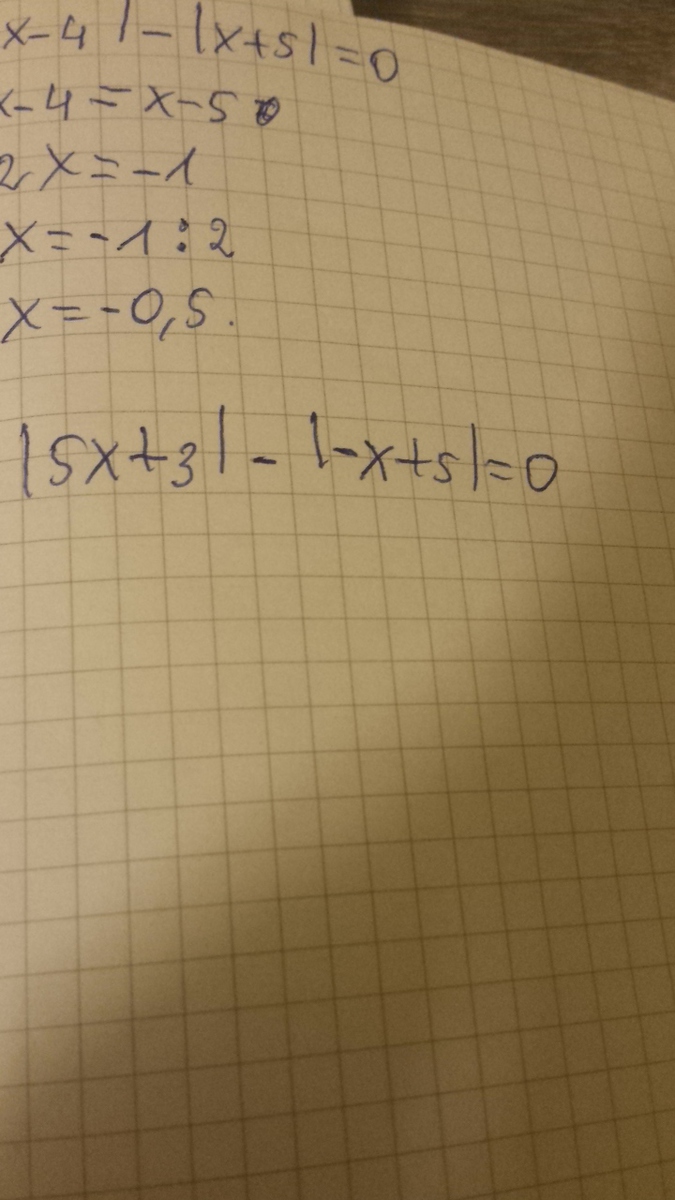 x-4|-|x+5|=0
x-4=x-5
2x=-1
x=-1:2
x=-0,5.
|5x+3|-|-x+5|=0